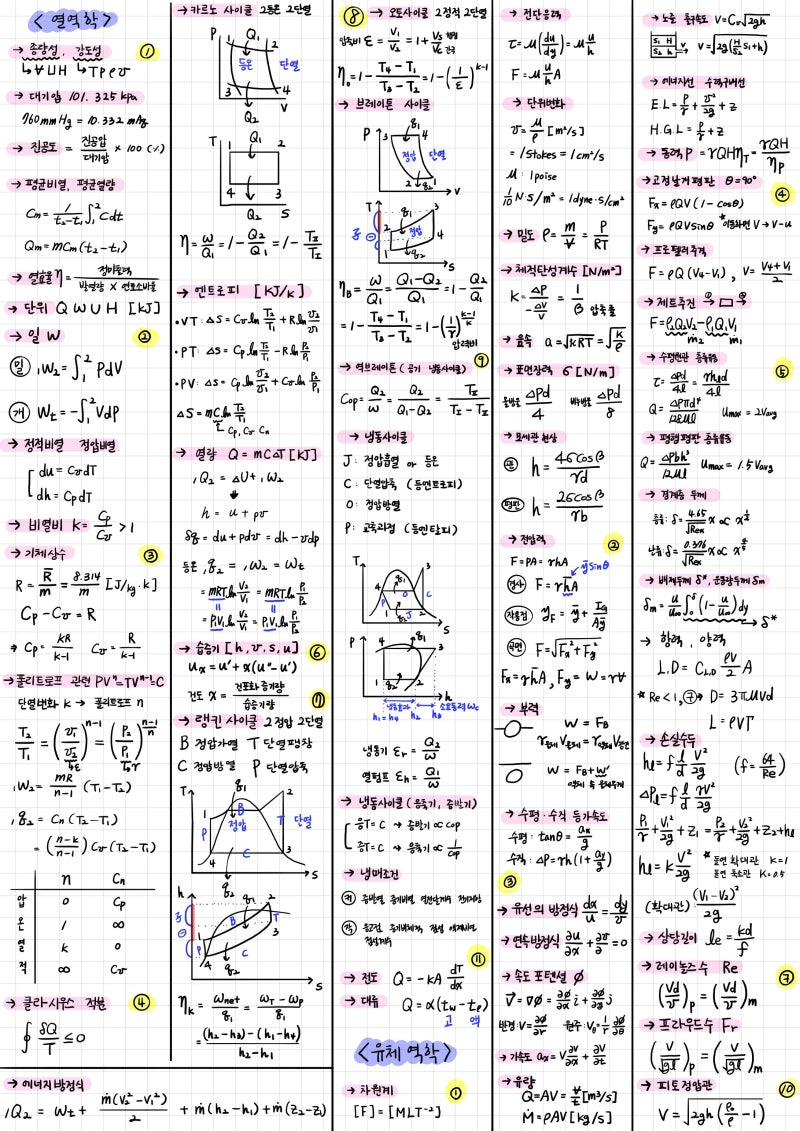 <열역학>
→ 종량성, 강도성 ①
↳ ∀UH ↳ TPρv
→ 대기압 101.325 kPa
760mmHg = 10.332 mAq
→ 진공도 = 진공압/대기압 × 100 (%)
→ 평균비열, 평균열량
Cm = 1/(t₂-t₁) ∫₁² Cdt
Qm = mCm(t₂-t₁)
→ 열효율 η = 정미출력/(발열량 × 연료소비율)
→ 단위 Q W U H [KJ]
→ 일 W ②
(밀) ₁W₂ = ∫₁² PdV
(개) Wt = -∫₁² VdP
→ 정적비열 정압비열
du = CvdT
dh = CpdT
→ 비열비 K = Cp/Cv > 1
→ 기체상수 ③
R = R̄/m = 8.314/m [J/kg·K]
Cp - Cv = R
⇒ Cp = kR/(k-1) Cv = R/(k-1)
→ 폴리트로프 관련 PVⁿ=TVⁿ⁻¹=C
단열변화 k → 폴리트로프 n
T₂/T₁ = (v₁/v₂)ⁿ⁻¹ = (P₂/P₁)^((n-1)/n)
₁W₂ = mR/(n-1) (T₁-T₂)
₁q₂ = Cn(T₂-T₁)
= ((n-k)/(n-1)) Cv(T₂-T₁)
n Cn
압 0 Cp
온 1 ∞
열 k 0
적 ∞ Cv
→ 클라우시우스 적분 ④
∮ δQ/T ≤ 0
→ 에너지방정식
₁Q₂ = Wt + ṁ(V₂²-V₁²)/2 + ṁ(h₂-h₁) + ṁ(Z₂-Z₁)
→ 카르노 사이클 2등온 2단열
P Q₁ 1 2 등온 단열 3 4 V Q₂
T Q₁ 1 2 4 3 Q₂ S
η = W/Q₁ = 1 - Q₂/Q₁ = 1 - TⅡ/TⅠ
→ 엔트로피 [KJ/K]
• VT: ΔS = Cv ln T₂/T₁ + R ln v₂/v₁
• PT: ΔS = Cp ln T₂/T₁ - R ln P₂/P₁
• PV: ΔS = Cp ln v₂/v₁ + Cv ln P₂/P₁
ΔS = mC ln T₂/T₁
↳ Cp, Cv Cn
→ 열량 Q = mCΔT [KJ]
₁Q₂ = ΔU + ₁W₂
h = u + pv
δq = du + pdv = dh - vdp
등온, ₁q₂ = ₁W₂ = Wt
= mRT₁ ln V₂/V₁ = mRT₁ ln P₁/P₂
= P₁V₁ ln V₂/V₁ = P₁V₁ ln P₁/P₂
→ 습증기 [h, v, s, u] ⑥
ux = u' + x(u''-u')
건도 x = 건포화증기량/습증기량 ⑦
→ 랭킨 사이클 2정압 2단열
B 정압가열 T 단열팽창
C 정압방열 P 단열압축
T q₁ 2 B 정압 T 단열 1 P C 4 3 q₂ S
h q₁ 2 B T 3 1 P C 4 q₂ S
ηk = Wnet/q₁ = (WT - WP)/q₁
= ((h₂-h₃)-(h₁-h₄))/(h₂-h₁)
⑧ → 오토사이클 2정적 2단열
압축비 ε = V₁/V₂ = 1 + Vs/Vc
η₀ = 1 - (T₄-T₁)/(T₃-T₂) = 1 - (1/ε)^(k-1)
→ 브레이튼 사이클
P q₁ 3 4 정압 단열 2 1 q₂ V
T q₁ 3 2 정압 4 1 q₂ S
ηB = W/Q₁ = (Q₁-Q₂)/Q₁ = 1 - Q₂/Q₁
= 1 - (T₄-T₁)/(T₃-T₂) = 1 - (1/γ)^((k-1)/k)
압력비
⑨
→ 역브레이튼 (공기 냉동사이클)
Cop = Q₂/W = Q₂/(Q₁-Q₂) = TⅡ/(TⅠ-TⅡ)
→ 냉동사이클
J: 정압흡열 or 등온
C: 단열압축 (등엔트로피)
O: 정압방열
P: 교축과정 (등엔탈피)
T q₁ 3 4 O C P 1 J 2 q₂ S
P q₁ 4 3 1 2 q₂ h
냉동효과 소요동력 Wc
h₁=h₄ h₂ h₃
냉동기 εr = Q₂/W
열펌프 εh = Q₁/W
→ 냉동사이클 (응축기, 증발기)
응T=C → 증발기 ∝ COP
증T=C → 응축기 ∝ 1/COP
→ 냉매조건
⑪
→ 전도 Q = -KA dT/dx
→ 대류 Q = α(tw - tf)
고 액
<유체역학>
→ 차원계 ①
[F] = [MLT⁻²]
→ 전단응력
τ = μ(du/dy) = μ u/h
F = μ u/h A
→ 단위변화
ν = μ/ρ [m²/s]
= 1Stokes = 1cm²/s
μ: 1poise
1/10 N·S/m² = 1dyne·s/cm²
→ 밀도 ρ = m/∀ = P/RT
→ 체적탄성계수 [N/m²]
K = ΔP/(-ΔV/V) = 1/β 압축률
→ 음속 a = √kRT = √(K/ρ)
→ 표면장력 σ [N/m]
물방울 ΔPd/4 비눗방울 ΔPd/8
→ 모세관현상
(관) h = 4σcosβ/γd
(평판) h = 2σcosβ/γb
→ 전압력 ②
F = PA = γhA
ȳsinθ
(경사) F = γh̄A
(작용점) yF = ȳ + IG/Aȳ
(곡면) F = √(Fx²+Fy²)
Fx = γh̄A, Fy = W = γ∀
→ 부력
W = FB
W = FB + W'
→ 수평·수직 등가속도
수평: tanθ = ax/g
수직: ΔP = γh(1+ay/g)
③
→ 유선의 방정식 dx/u = dy/v
→ 연속방정식 ∂u/∂x + ∂v/∂y = 0
→ 속도 포텐셜 Ø
V⃗ = ∇Ø = ∂Ø/∂x i + ∂Ø/∂y j
반경: V = ∂Ø/∂r 원주: Vθ = 1/r ∂Ø/∂θ
→ 가속도 ax = V ∂V/∂x + ∂V/∂t
→ 유량
Q = AV = ∀/t [m³/s]
Ṁ = ρAV [kg/s]
→ 노즐 분출속도 V = Cv√2gh
S₁ H
S₂ h → V V = √(2g(H/S₂ S₁+h))
→ 에너지선 수력구배선
E.L = P/γ + v²/2g + Z
H.G.L = P/γ + Z
→ 동력 P = γQHηT = γQH/ηP
→ 고정날개평판 θ=90° ④
Fx = ρQV(1-cosθ)
Fy = ρQVsinθ *이동하면 V→V-u
→ 프로펠러추력
F = ρQ(V₄-V₁), V = (V₄+V₁)/2
→ 제트추진 ① → □ → ②
F = ρ₂Q₂V₂ - ρ₁Q₁V₁
ṁ₂ ṁ₁
→ 수평원관 층류유동 ⑤
τ = ΔPd/4l = γhld/4l
Q = ΔPπd⁴/128μl Umax = 2Vavg
→ 평행평판 층류유동
Q = ΔPbh³/12μl Umax = 1.5Vavg
→ 경계층 두께
층류: δ = 4.65/√Rex x ∝ x^(1/2)
난류: δ = 0.376/⁵√Rex x ∝ x^(4/5)
→ 배제두께 δ*, 운동량두께 δm
δm = u/u∞ ∫₀^δ (1 - u/u∞)dy
δ*
→ 항력, 양력
L.D = CL.D ρV²/2 A
* Re<1, 구→ D = 3πμVd
L = ρVΓ
→ 손실수두
hl = f l/d V²/2g (f = 64/Re)
ΔPl = f l/d γV²/2g
P₁/γ + V₁²/2g + Z₁ = P₂/γ + V₂²/2g + Z₂ + hl
hl = K V²/2g *돌연확대관 K=1
돌연축소관 K=0.5
(확대관): (V₁-V₂)²/2g
→ 상당길이 le = kd/f
→ 레이놀즈수 Re ⑦
(Vd/ν)p = (Vd/ν)m
→ 프라우드수 Fr
(V/√gl)p = (V/√gl)m
→ 피토정압관 ⑩
V = √(2gh(ρ₀/ρ - 1))